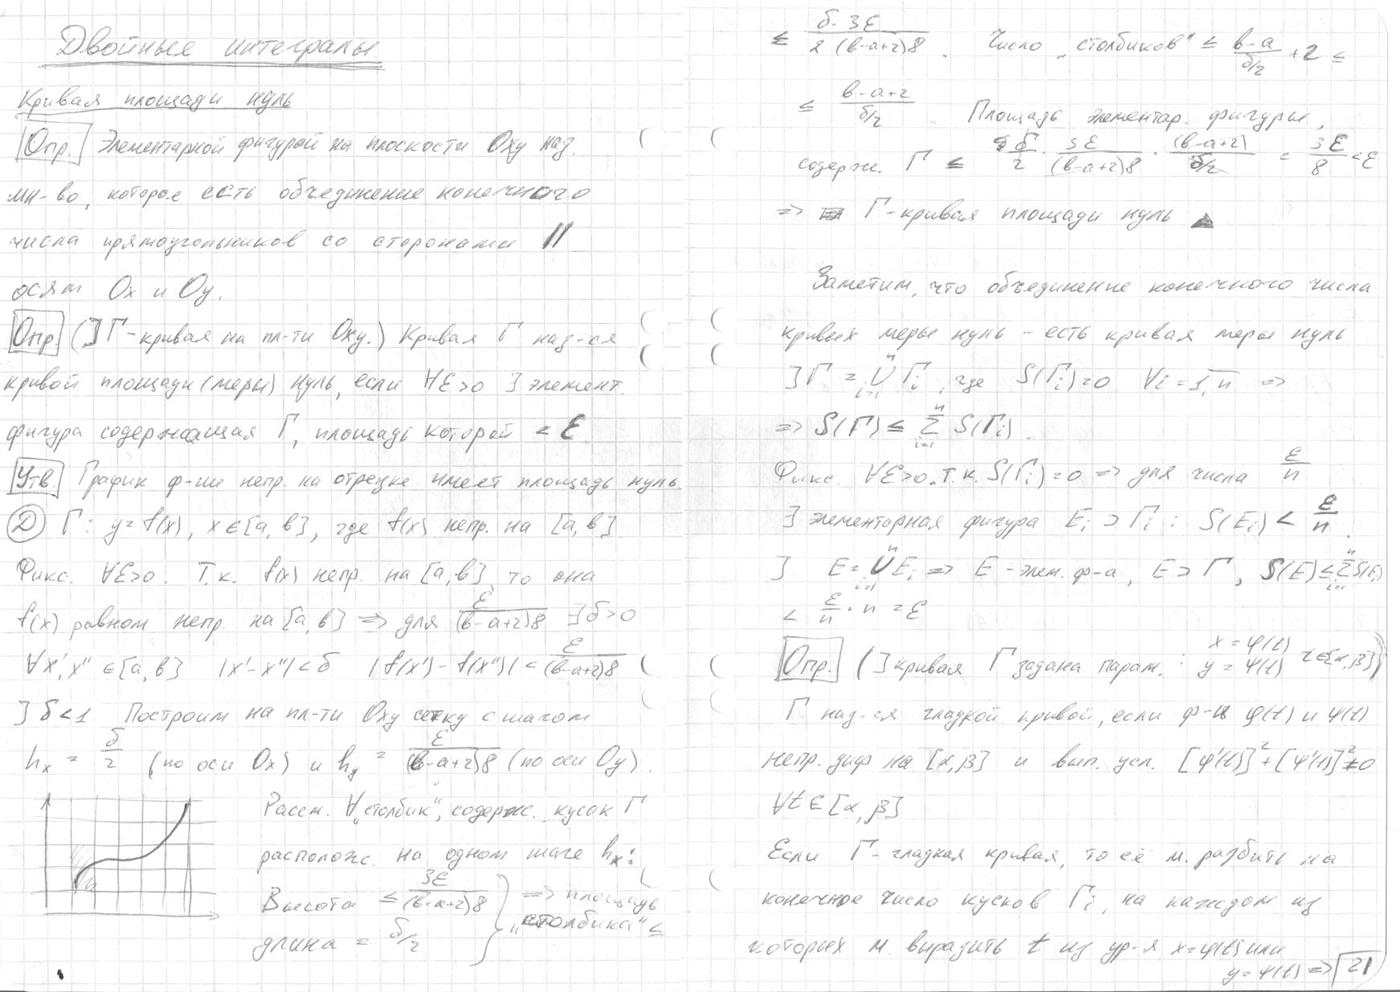 Двойные интегралы
Кривая площади нуль
Опр. Элементарной фигурой на плоскости Oxy наз.
мн-во, которое есть объединение конечного
числа прямоугольников со сторонами ||
осям Ox и Oy.
Опр. (∃ Г-кривая на пл-ти Oxy.) Кривая Г наз-ся
кривой площади (меры) нуль, если ∀ε>0 ∃ элемент.
фигура содержащая Г, площадь которой < ε.
Утв. График ф-ии непр. на отрезке имеет площадь нуль.
Д Г: y = f(x), x∈[a, b], где f(x) непр. на [a, b]
Фикс. ∀ε>0. Т.к. f(x) непр. на [a, b], то она
f(x) равном. непр. на [a, b] => для ε/((b-a+2)8) ∃ δ>0
∀x', x'' ∈[a, b] |x'-x''|<δ |f(x')-f(x'')| < ε/((b-a+2)8)
∃ δ<1 Построим на пл-ти Oxy сетку с шагом
hx = δ/2 (по оси Ox) и hy = ε/((b-a+2)8) (по оси Oy).
Рассм. ∀ „столбик“, содерж. кусок Г
располож. на одном шаге hx:
Высота ≤ 3ε/((b-a+2)8)
длина = δ/2
=> площадь
„столбика“ ≤
≤ δ·3ε/(2(b-a+2)8). Число „столбиков“ ≤ (b-a)/(δ/2) + 2 ≤
≤ (b-a+2)/(δ/2). Площадь элементар. фигуры,
содерж. Г ≤ δ/2 · 3ε/((b-a+2)8) · (b-a+2)/(δ/2) = 3ε/8 < ε
=> Г-кривая площади нуль ▲
Заметим, что объединение конечного числа
кривых меры нуль - есть кривая меры нуль
∃ Г = ∪ⁿᵢ₌₁ Гi, где S(Гi)=0 ∀i = 1, n =>
=> S(Г) ≤ Σⁿᵢ₌₁ S(Гi).
Фикс. ∀ε>0. Т.к. S(Гi)=0 => для числа ε/n
∃ элементарная фигура Ei ⊃ Гi : S(Ei) < ε/n.
∃ E = ∪ⁿᵢ₌₁ Ei => E - элем. ф-а, E ⊃ Г, S(E) ≤ Σⁿᵢ₌₁ S(Ei)
< ε/n · n = ε
Опр. (∃ кривая Г задана парам.: x = φ(t) y = ψ(t) t∈[α, β])
Г наз-ся гладкой кривой, если ф-и φ(t) и ψ(t)
непр. диф на [α, β] и вып. усл. [φ'(t)]²+[ψ'(t)]²≠0
∀t∈[α, β]
Если Г-гладкая кривая, то её м. разбить на
конечное число кусков Гi, на каждом из
которых м. выразить t из ур-я x=φ(t) или
y = ψ(t) => 21